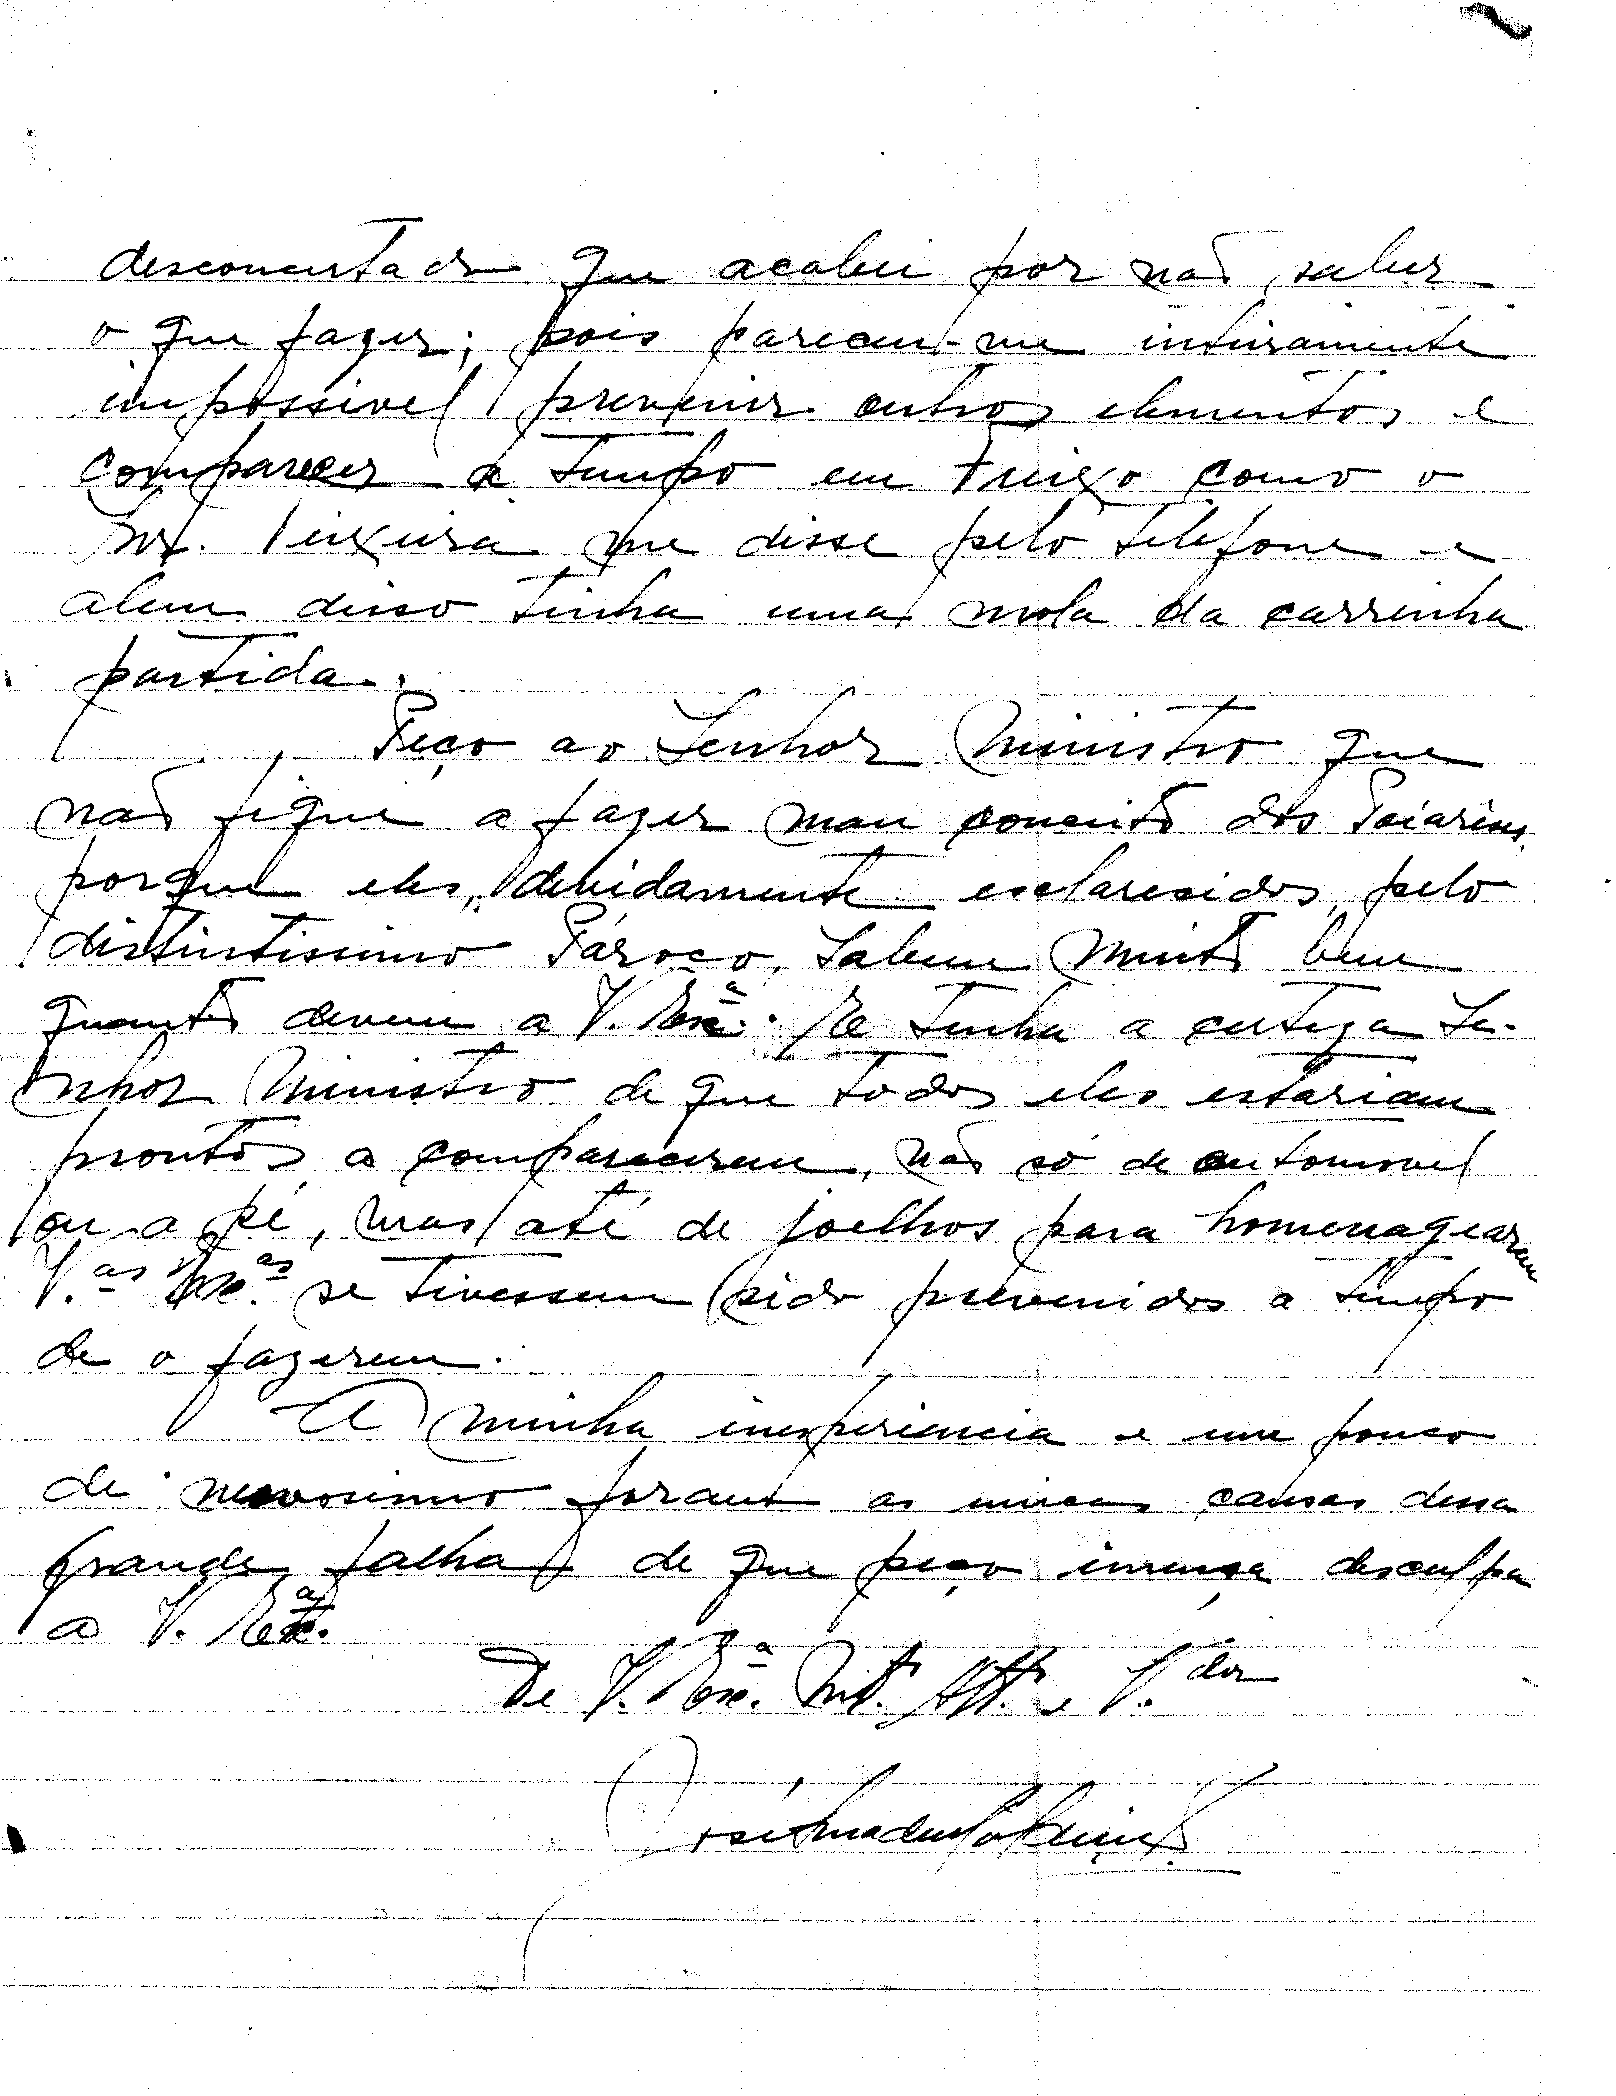 desconcertado que acabei por não saber
o que fazer; pois pareceu-me inteiramente
impossivel prevenir outros elementos e
comparecer a tempo em Freixo como o
Snr. Teixeira me disse pelo telefone e
alem disso tinha uma mola da carrinha
partida.
Peço ao Senhor Ministro que
não fique a fazer mau conceito dos Poiarenses
porque eles, devidamente esclarecidos pelo
distintissimo Pároco, sabem muito bem
quanto devem a V. Exª. E tenha a certeza Se-
nhor Ministro de que todos eles estariam
prontos a comparecerem, não só de automovel
ou a pé, mas até de joelhos para homenagearem
V.as Ex.as se tivessem sido prevenidos a tempo
de o fazerem.
A minha inexperiencia e um pouco
de nervosismo foram as unicas causas dessa
grande falha de que peço imensa desculpa
a V. Exª.
De V. Exª. Mt.º Att.º e V.dor
José